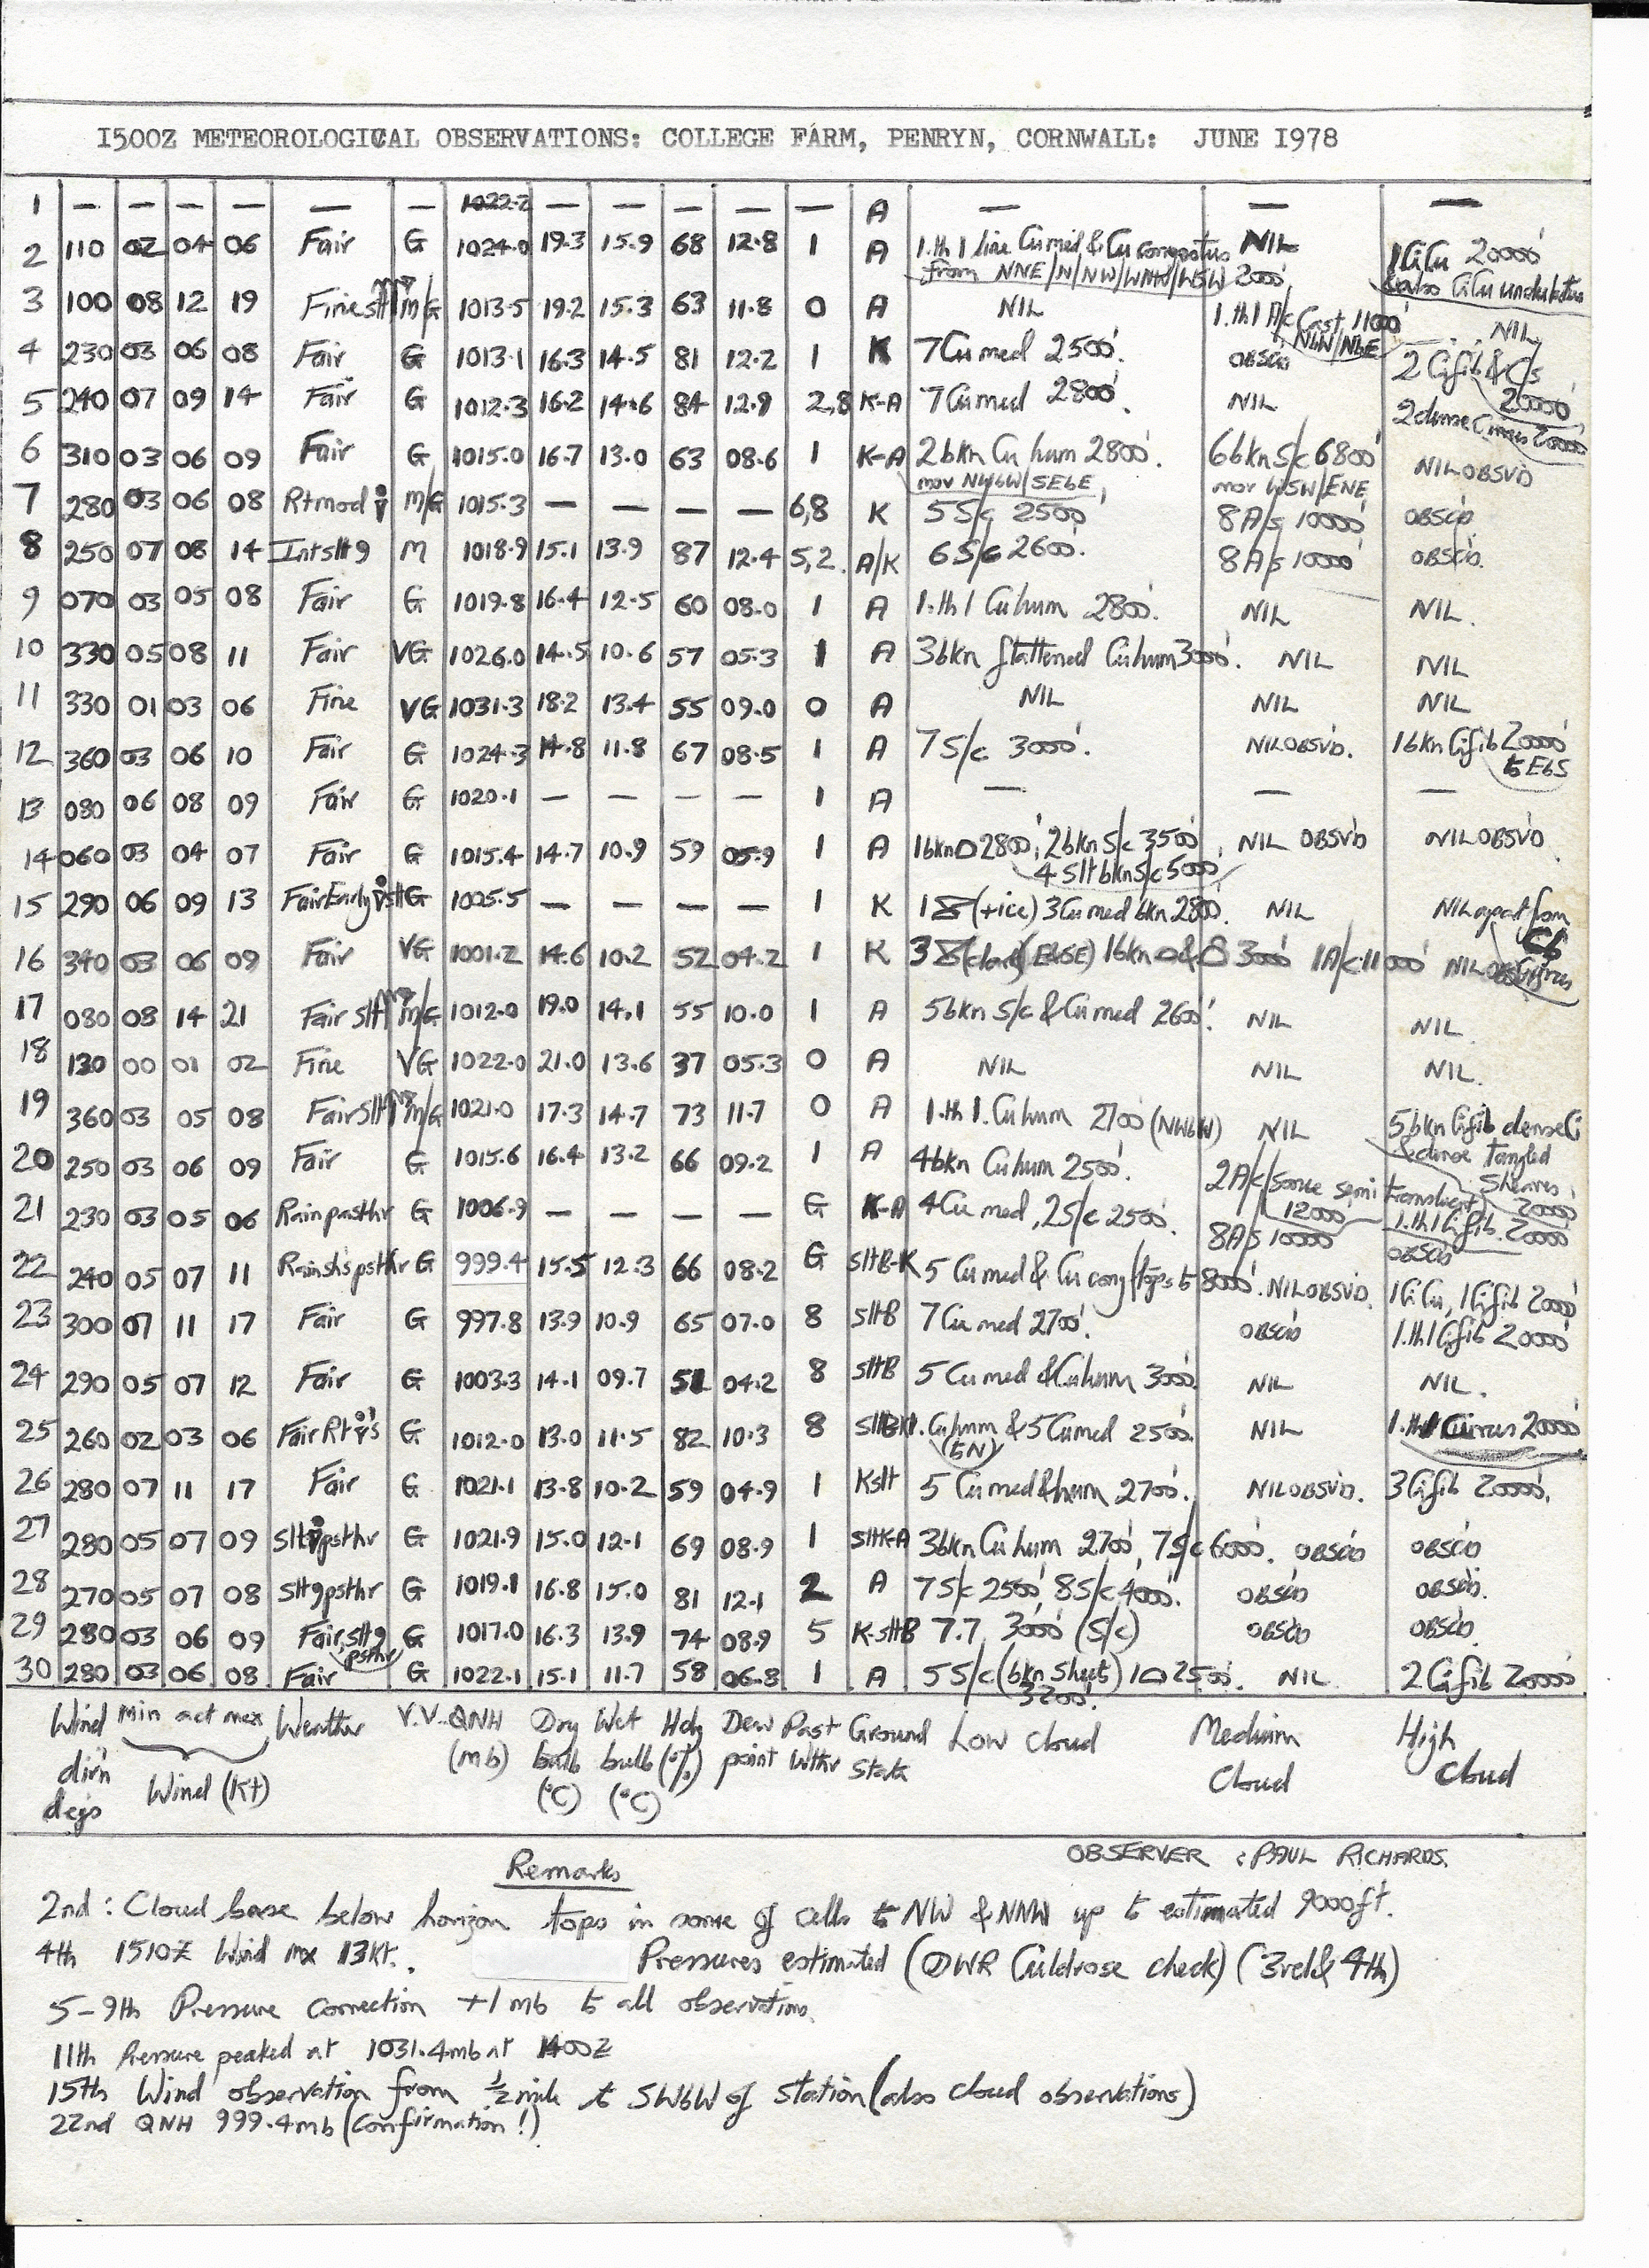 I500Z METEOROLOGICAL OBSERVATIONS: COLLEGE FARM, PENRYN, CORNWALL: JUNE I978
1 — — — — — — 1022.2 — — — — — A — — —
2 110 02 04 06 Fair G 1024.0 19.3 15.9 68 12.8 1 A 1.th 1 line Cu med & Cu congestus NIL 1 CiCu 20000'
from NNE/N/NW/WNW/WSW 2000' & also CiCu undulatus
3 100 08 12 19 Fine slt M/G 1013.5 19.2 15.3 63 11.8 0 A NIL 1.th 1 A/c Cast 11000' NIL
NbW/NbE
4 230 03 06 08 Fair G 1013.1 16.3 14.5 81 12.2 1 K 7 Cu med 2500'. OBSCD 2 Cifib & C/s
20000'
5 240 07 09 14 Fair G 1012.3 16.2 14.6 84 12.9 2,8 K-A 7 Cu med 2800'. NIL 2 dense Cirrus 20000'
6 310 03 06 09 Fair G 1015.0 16.7 13.0 63 08.6 1 K-A 2 bkn Cu hum 2800'. 6 bkn S/c 6800' NIL OBSVD
mov NWbW/SEbE, mov WSW/ENE
7 280 03 06 08 Rt mod M/G 1015.3 — — — — 6,8 K 5 S/c 2500' 8 A/s 10000' OBSCD
8 250 07 08 14 Int slt 9 M 1018.9 15.1 13.9 87 12.4 5,2. A/K 6 S/c 2600'. 8 A/s 10000' OBSCD.
9 070 03 05 08 Fair G 1019.8 16.4 12.5 60 08.0 1 A 1.th 1 Cu hum 2800'. NIL NIL.
10 330 05 08 11 Fair VG 1026.0 14.5 10.6 57 05.3 1 A 3 bkn flattened Cu hum 3000'. NIL NIL
11 330 01 03 06 Fine VG 1031.3 18.2 13.4 55 09.0 0 A NIL NIL NIL
12 360 03 06 10 Fair G 1024.3 14.8 11.8 67 08.5 1 A 7 S/c 3000'. NIL OBSVD. 1 bkn Cifib 20000'
to EbS
13 080 06 08 09 Fair G 1020.1 — — — — 1 A — — —
14 060 03 04 07 Fair G 1015.4 14.7 10.9 59 05.9 1 A 1 bkn 2800', 2 bkn S/c 3500', NIL OBSVD NIL OBSVD.
4 slt bkn S/c 5000'
15 290 06 09 13 Fair Early slt G 1005.5 — — — — 1 K 1 (+ice) 3 Cu med bkn 2800'. NIL NIL apart from
Cb
16 340 03 06 09 Fair VG 1001.2 14.6 10.2 52 04.2 1 K 3 (EbSE) 1 bkn & 3000' 1 A/c 11000' NIL Cirrus
17 080 08 14 21 Fair slt M/G 1012.0 19.0 14.1 55 10.0 1 A 5 bkn S/c & Cu med 2600'. NIL NIL.
18 130 00 01 02 Fine VG 1022.0 21.0 13.6 37 05.3 0 A NIL NIL NIL.
19 360 03 05 08 Fair slt M/G 1021.0 17.3 14.7 73 11.7 0 A 1.th 1. Cu hum 2700' (NWbW) NIL 5 bkn Cifib dense Ci
& dense tangled
Sheaves
20000'
20 250 03 06 09 Fair G 1015.6 16.4 13.2 66 09.2 1 A 4 bkn Cu hum 2500'. 2 A/c some semi translucent 1.th 1 Cifib. 20000'
12000'
21 230 03 05 06 Rain pasthr G 1006.9 — — — — G K-A 4 Cu med, 2 S/c 2500'. 8 A/s 10000' OBSCD
22 240 05 07 11 Rain sh's psthr G 999.4 15.5 12.3 66 08.2 G slt B-K 5 Cu med & Cu cong/tops to 8000'. NIL OBSVD. 1 CiCu, 1 Cifib 20000'
23 300 07 11 17 Fair G 997.8 13.9 10.9 65 07.0 8 slt B 7 Cu med 2700'. OBSCD 1.th 1 Cifib 20000'
24 290 05 07 12 Fair G 1003.3 14.1 09.7 51 04.2 8 slt B 5 Cu med & Cu hum 3000'. NIL NIL.
25 260 02 03 06 Fair Rt G 1012.0 13.0 11.5 82 10.3 8 slt B-K 1. Cu hum & 5 Cu med 2500'. NIL 1.th 1 Cirrus 20000'
(to N)
26 280 07 11 17 Fair G 1021.1 13.8 10.2 59 04.9 1 K slt 5 Cu med & hum 2700'. NIL OBSVD. 3 Cifib 20000'.
27 280 05 07 09 Slt psthr G 1021.9 15.0 12.1 69 08.9 1 slt K-A 3 bkn Cu hum 2700', 7 S/c 6000'. OBSCD OBSCD
28 270 05 07 08 Slt 9 psthr G 1019.1 16.8 15.0 81 12.1 2 A 7 S/c 2500', 8 S/c 4000'. OBSCD OBSCD.
29 280 03 06 09 Fair, slt 9 psthr G 1017.0 16.3 13.9 74 08.9 5 K-slt B 7.7 3000' (S/c) OBSCD OBSCD.
30 280 03 06 08 Fair G 1022.1 15.1 11.7 58 06.8 1 A 5 S/c (bkn sheet) 1 2500'. NIL 2 Cifib 20000'
3200'.
Wind min act max Weather V.V. QNH Dry Wet Hdy Dew Past Ground Low Cloud Medium High
dir'n Wind (kt) (mb) bulb bulb (%) point Wthr State Cloud Cloud
degs (°C) (°C)
OBSERVER : PAUL RICHARDS.
Remarks
2nd : Cloud base below horizon tops in some of cells to NW & NNW up to estimated 9000ft.
4th 1510Z Wind mx 13kt. Pressures estimated (DWR Culdrose check) (3rd & 4th)
5-9th Pressure correction +1mb to all observations.
11th Pressure peaked at 1031.4mb at 1400Z
15th Wind observation from ½ mile to SWbW of station (also cloud observations)
22nd QNH 999.4mb (Confirmation!)